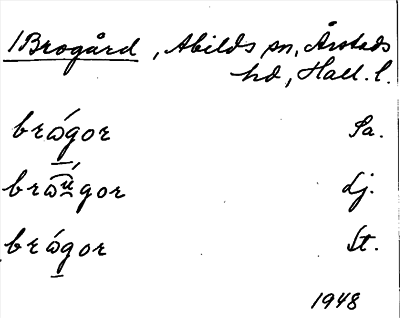 1 Brogård, Abilds sn, Årstads
hd, Hall. l.
brώgor Sa.
brωú̯gor Lj.
brώgor St.
1948